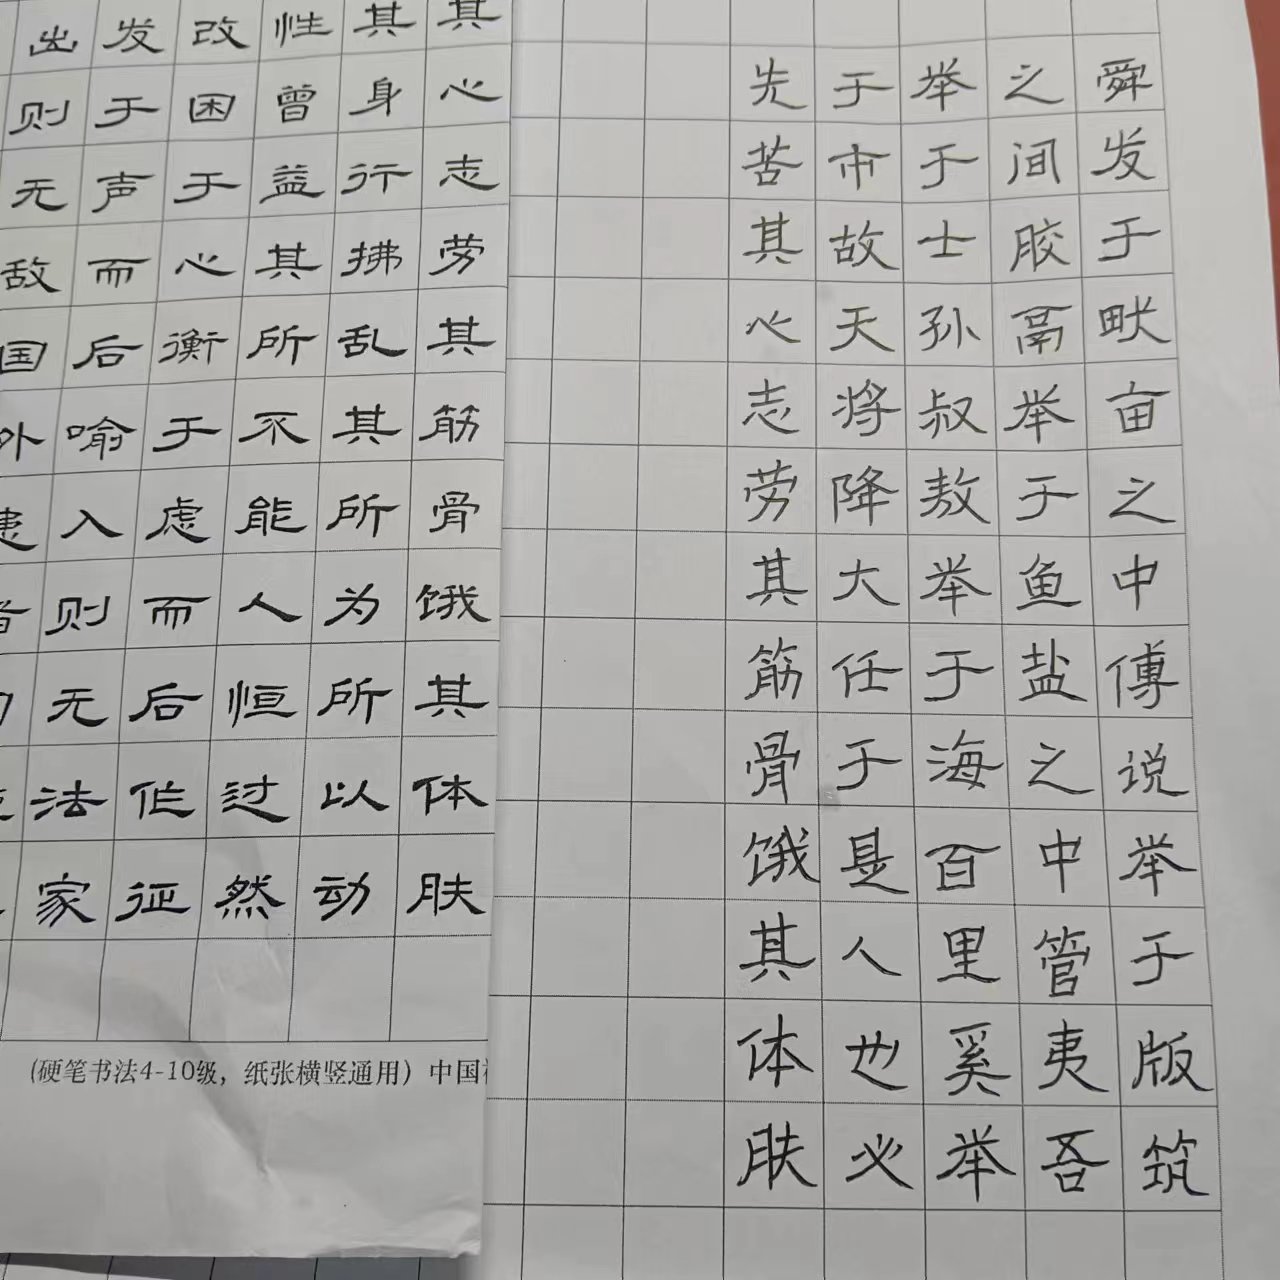 舜发于畎亩之中傅说举于版筑
之间胶鬲举于鱼盐之中管夷吾
举于士孙叔敖举于海百里奚举
于市故天将降大任于是人也必
先苦其心志劳其筋骨饿其体肤
其心志劳其筋骨饿其体肤
其身行拂乱其所为所以动
性曾益其所不能人恒过然
改困于心衡于虑而后作征
发于声而后喻入则无法家
出则无敌国外患者
(硬笔书法4-10级，纸张横竖通用）中国